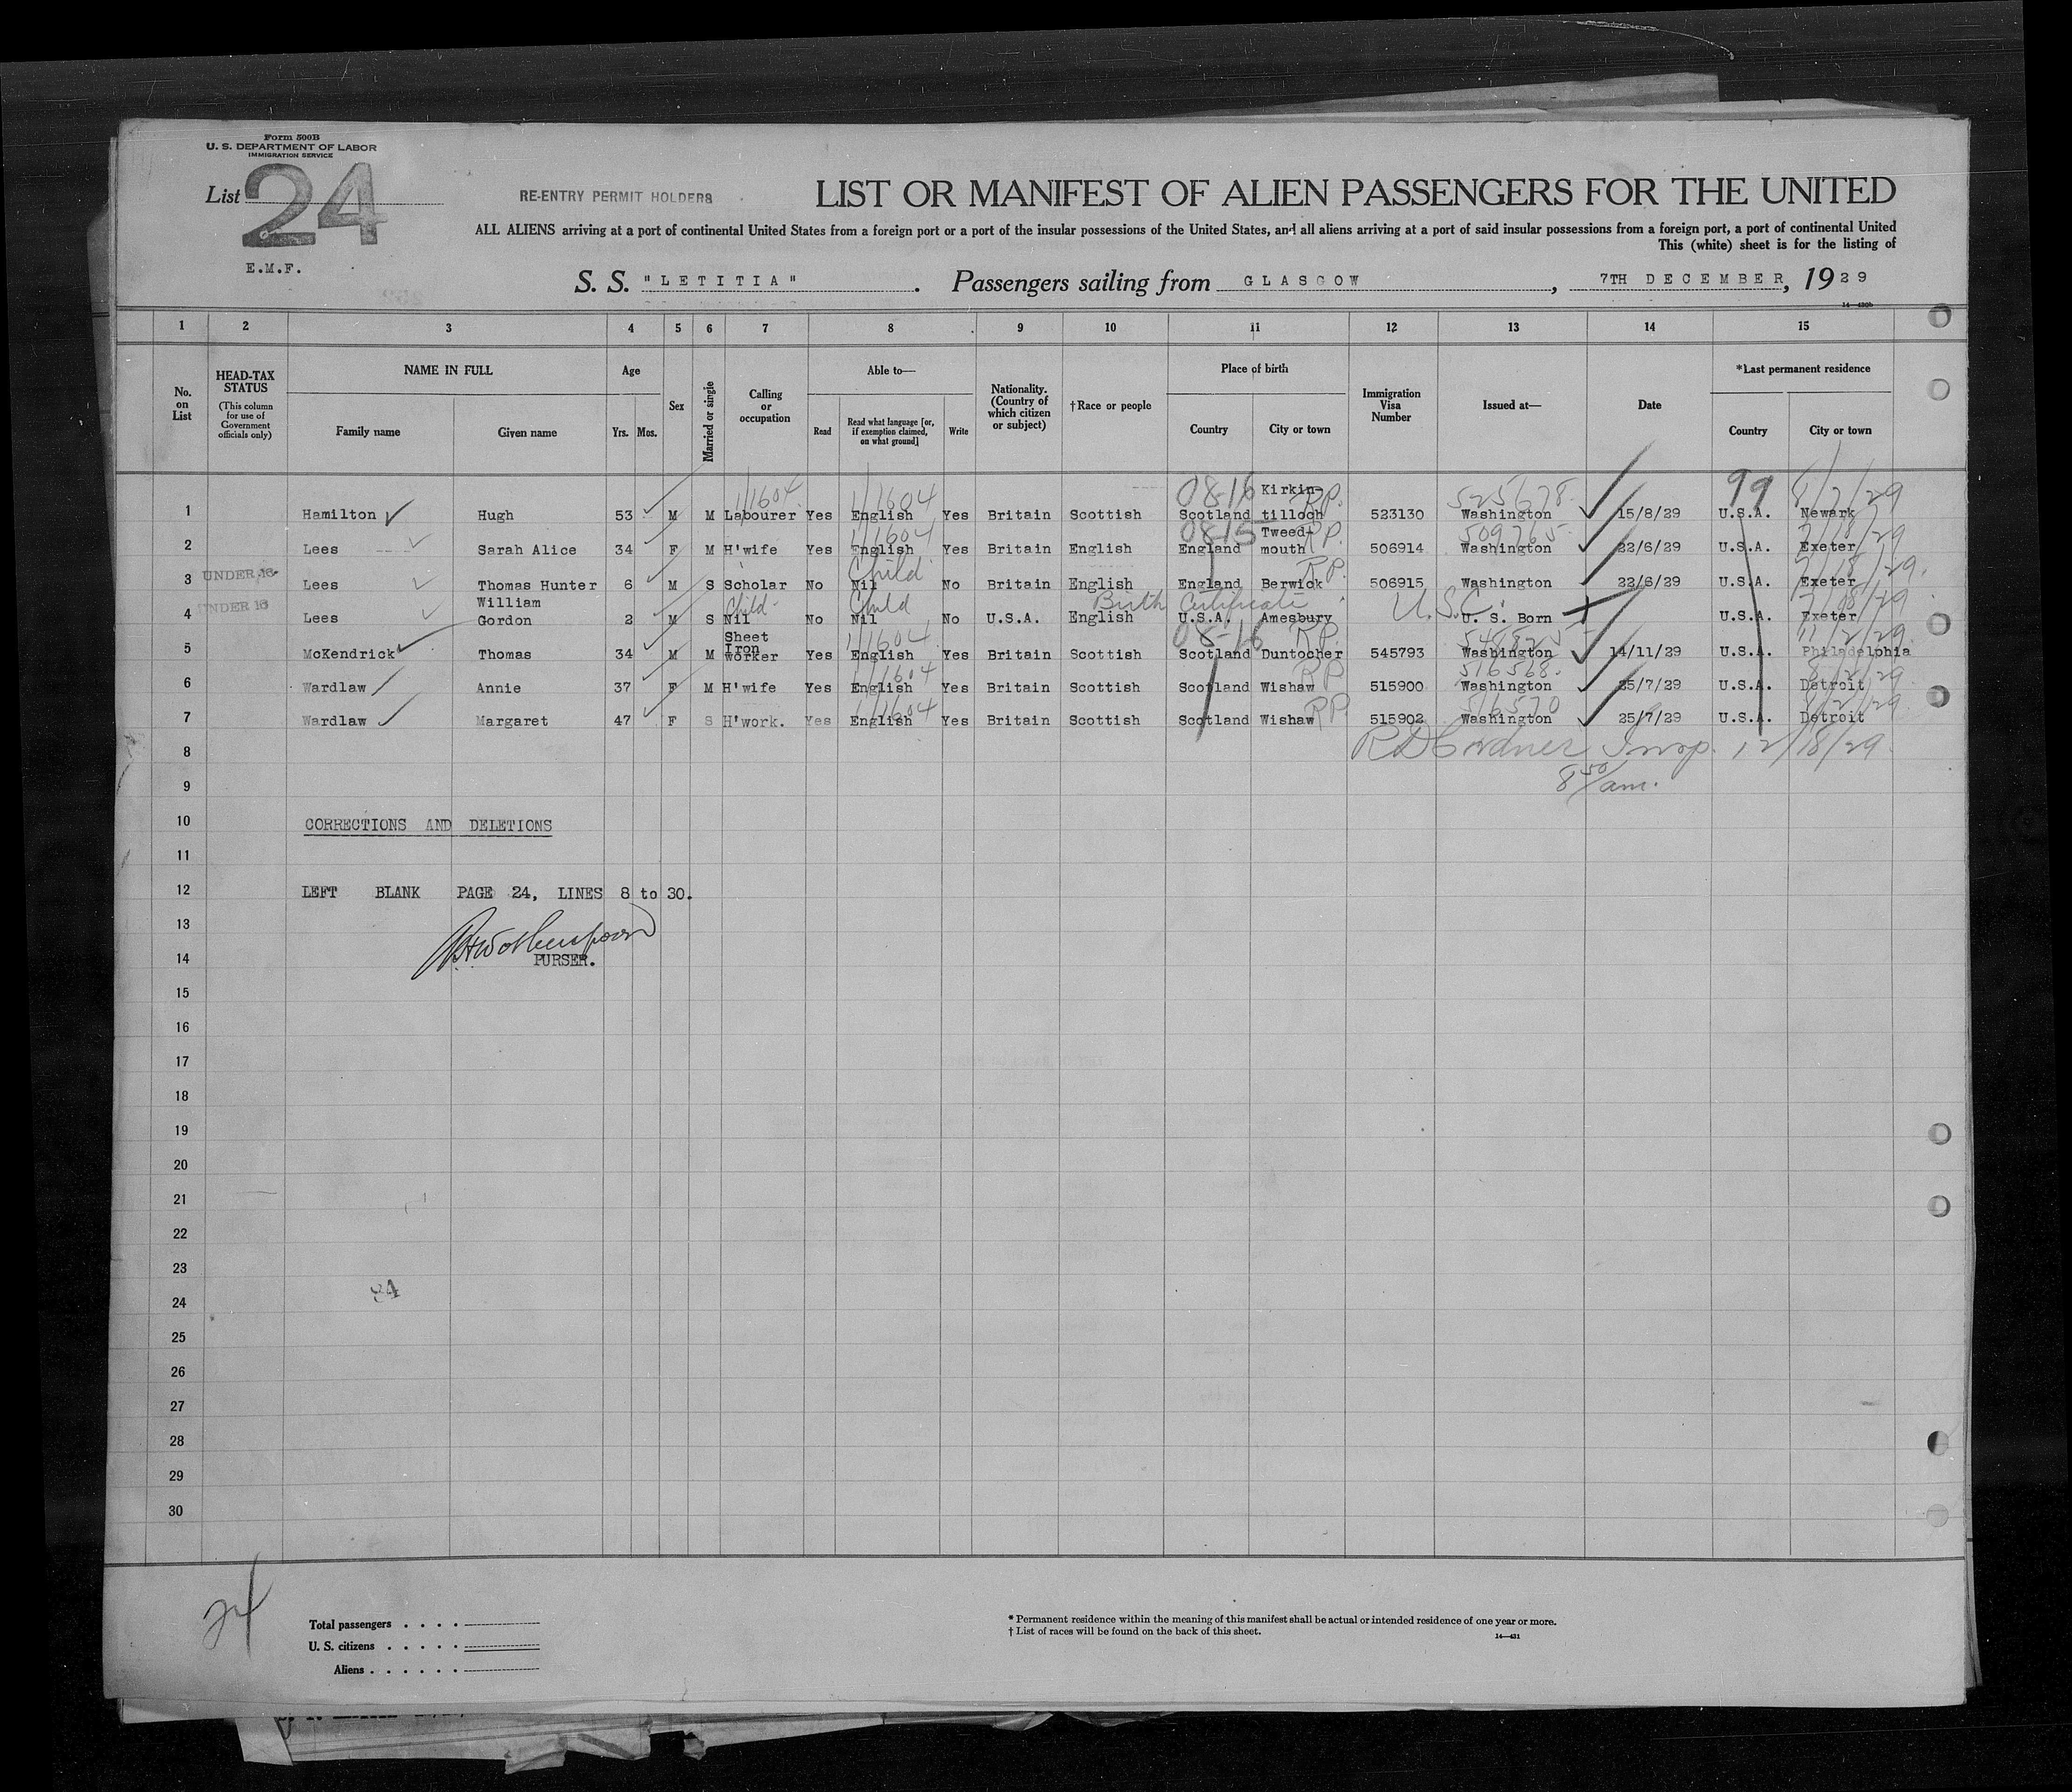 Form 500B
U. S. DEPARTMENT OF LABOR
IMMIGRATION SERVICE
List 24
RE-ENTRY PERMIT HOLDERS
LIST OR MANIFEST OF ALIEN PASSENGERS FOR THE UNITED
ALL ALIENS arriving at a port of continental United States from a foreign port or a port of the insular possessions of the United States, and all aliens arriving at a port of said insular possessions from a foreign port, a port of continental United
This (white) sheet is for the listing of
E.M.F.
S. S. "LETITIA" . Passengers sailing from GLASGOW , 7TH DECEMBER, 1929
14—430b
1 2 3 4 5 6 7 8 9 10 11 12 13 14 15
No. on List
HEAD-TAX STATUS (This column for use of Government officials only)
NAME IN FULL
Family name Given name
Age
Yrs. Mos.
Sex
Married or single
Calling or occupation
Able to—
Read Read what language [or, if exemption claimed, on what ground] Write
Nationality. (Country of which citizen or subject)
†Race or people
Place of birth
Country City or town
Immigration Visa Number
Issued at—
Date
*Last permanent residence
Country City or town
1/1604 1/1604 0816 Kirkin- R.P. 525678 99 8/2/29
1 Hamilton Hugh 53 M M Labourer Yes English Yes Britain Scottish Scotland tilloch 523130 Washington 15/8/29 U.S.A. Newark
1/1604 0815 Tweed- R.P. 509765
2 Lees Sarah Alice 34 F M H'wife Yes English Yes Britain English England mouth 506914 Washington 22/6/29 U.S.A. Exeter
UNDER 16 Child R.P.
3 Lees Thomas Hunter 6 M S Scholar No Nil No Britain English England Berwick 506915 Washington 22/6/29 U.S.A. Exeter
UNDER 16 William Child Child Birth Certificate U.S.C.
4 Lees Gordon 2 M S Nil No Nil No U.S.A. English U.S.A. Amesbury U. S. Born U.S.A. Exeter
Sheet Iron 1/1604 08-16 R.P. 11/2/29
5 McKendrick Thomas 34 M M worker Yes English Yes Britain Scottish Scotland Duntocher 545793 Washington 14/11/29 U.S.A. Philadelphia
1/1604 R.P. 516568
6 Wardlaw Annie 37 F M H'wife Yes English Yes Britain Scottish Scotland Wishaw 515900 Washington 25/7/29 U.S.A. Detroit
1/1604 R.P. 516570
7 Wardlaw Margaret 47 F S H'work. Yes English Yes Britain Scottish Scotland Wishaw 515902 Washington 25/7/29 U.S.A. Detroit
8 Insp. 12/18/29
9 8 50/am.
10 CORRECTIONS AND DELETIONS
11
12 LEFT BLANK PAGE 24, LINES 8 to 30.
13
14 PURSER.
15
16
17
18
19
20
21
22
23
24
25
26
27
28
29
30
24
Total passengers
U. S. citizens
Aliens
* Permanent residence within the meaning of this manifest shall be actual or intended residence of one year or more.
† List of races will be found on the back of this sheet.
14—431